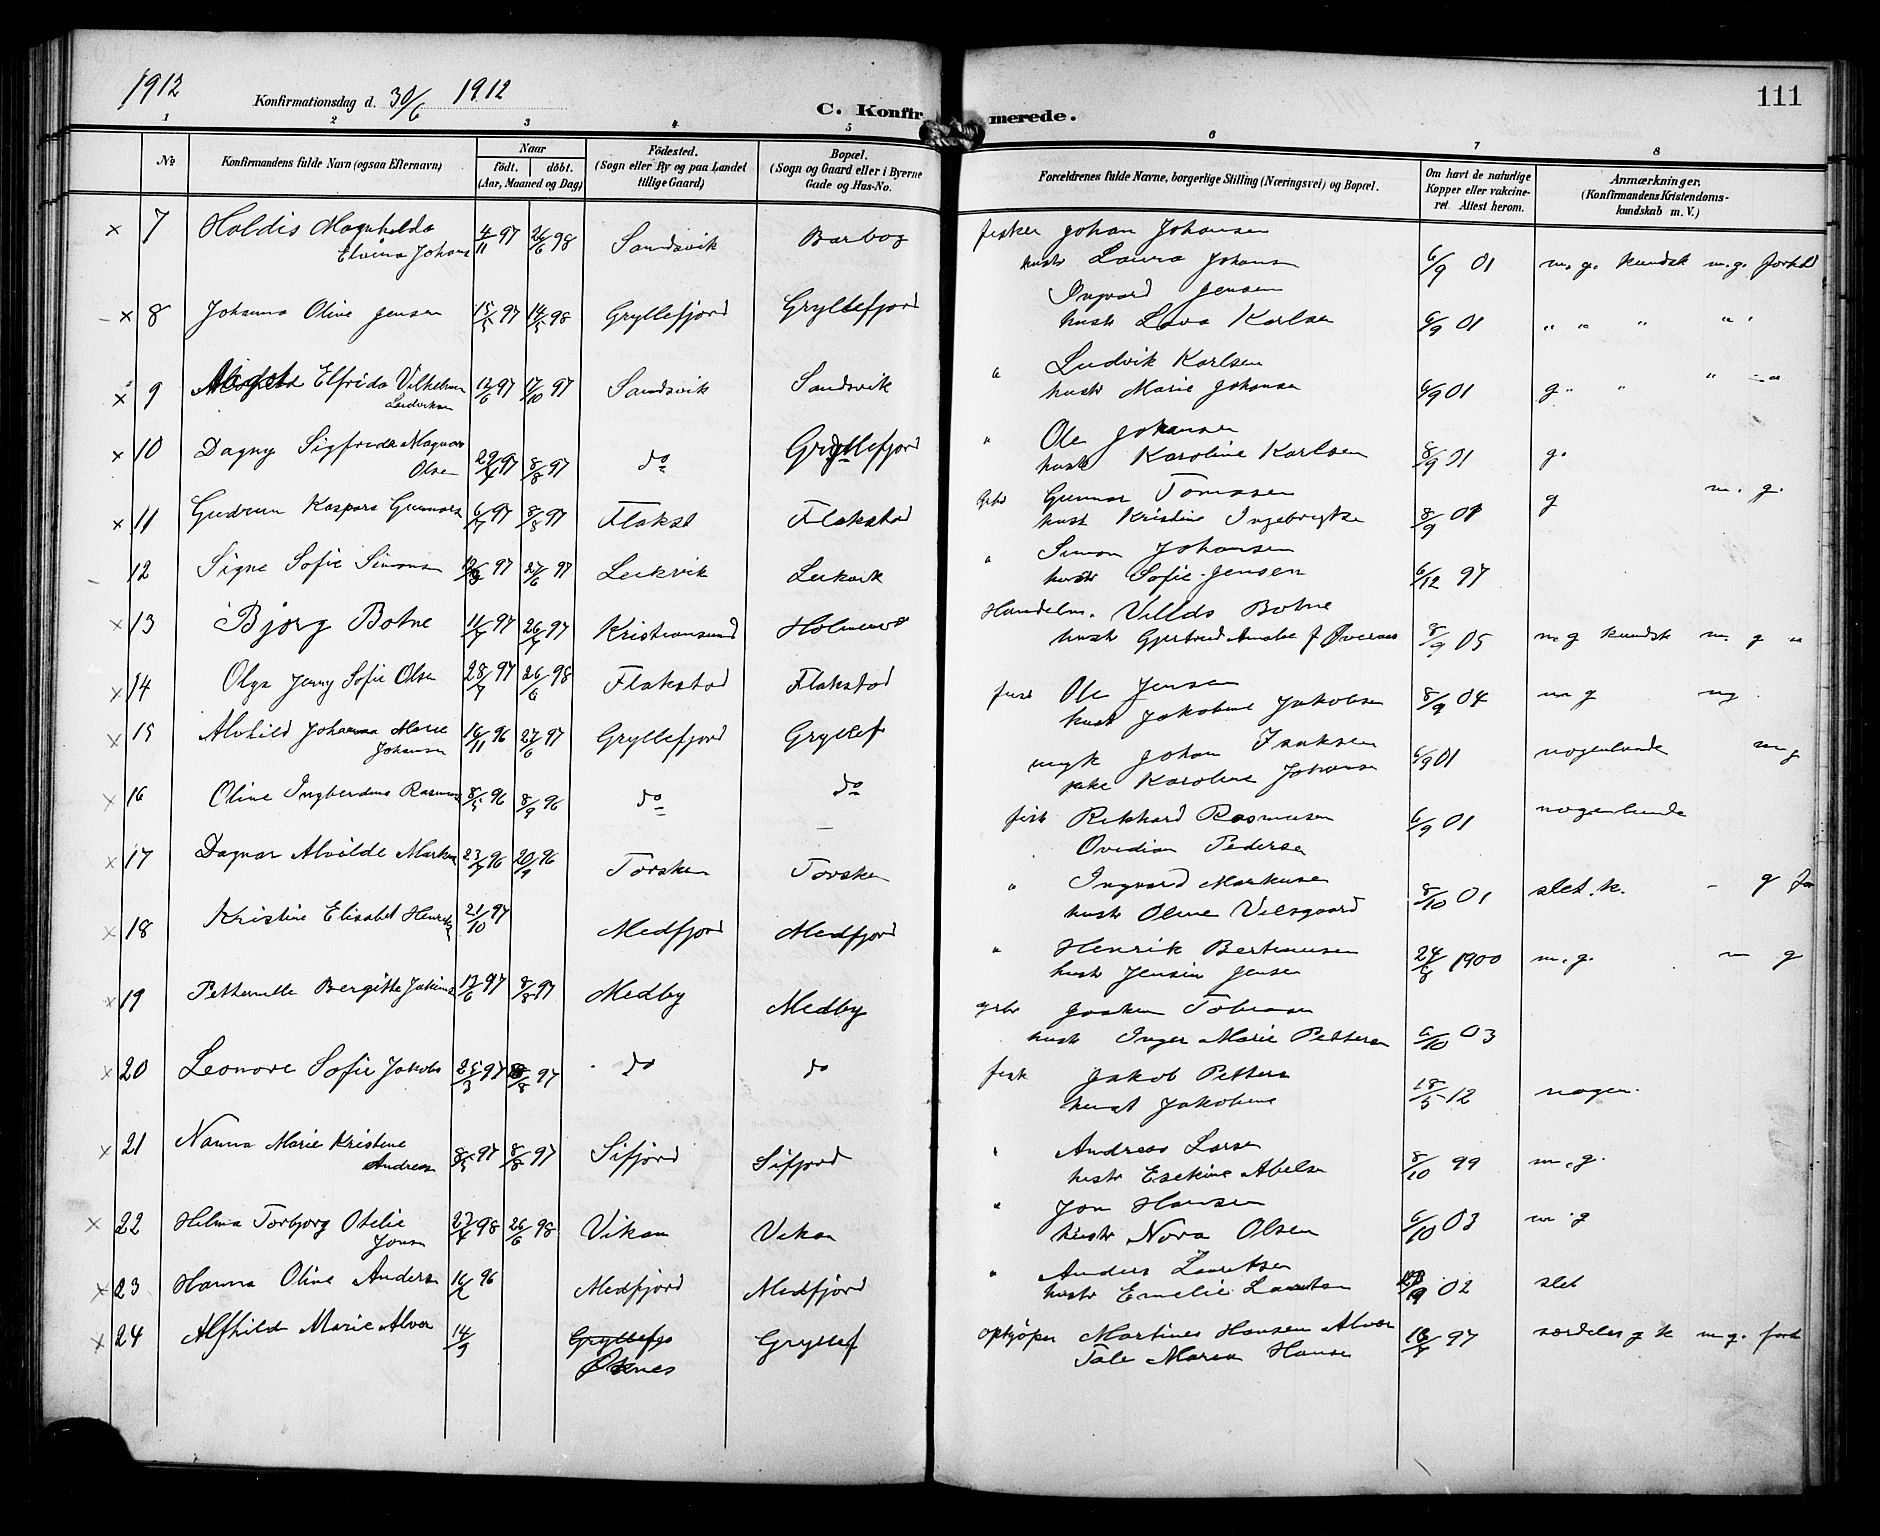 1912
Konfirmationsdag d. 30/6 1912
C. Konfirmerede.
111
1 2 3 4 5 6 7 8
No
Konfirmandens fulde Navn (ogsaa Efternavn)
Naar
födt. döbt.
(Aar, Maaned og Dag)
Födested.
(Sogn eller By og paa Landet
tillige Gaard)
Bopæl.
(Sogn og Gaard eller i Byerne
Gade og Hus-No.
Forældrenes fulde Navne, borgerlige Stilling (Næringsvei) og Bopæl.
Om havt de naturlige
Kopper eller vakcine-
ret. Attest herom.
Anmærkninger.
(Konfirmandens Kristendoms-
kundskab m. V.)
× 7 Haldis Magnhilda 4/11 97 26/6 98 Sandsvik Barbog fisker Johan Johansen
Elvina Johans hustr Laura Johans 6/9 01 m. g. kundsk m. g. forhld
× 8 Johanna Oline Jensen 15/5 97 14/5 98 Gryllefjord Gryllefjord Ingvard Jensen
hustr Lava Karlsen 6/9 01 " " " " "
× 9 Elfrida Vilhelmin 12/6 97 17/10 97 Sandsvik Sandsvik " Ludvik Karlsen
Ludviksen hustr Marie Johansen 6/9 01 g " " " "
× 10 Dagny Sigfrida Magnora 97 8/8 97 do Gryllefjord " Ole Johansen
Olsen hustr Karoline Karlsen 8/9 01 g.
× 11 Gudrun Kaspara Gunnars 97 8/8 97 Flakst Flakstad Gunnar Tomasen m. g.
hust Kristine Ingebrigtse 8/9 01 g
12 Signe Sofie Simons 97 27/6 97 Leikvik Leikvik " Simon Johansen
hustr Sofie Jensen 6/12 97
× 13 Bjorg Botne 97 97 Kristiansund Handelm. Villds Botne
hustr Gjertrud Amalie f Øveraas 8/9 05 m g kundsk m. g "
× 14 Olga Jenny Sofie Olsen 28/7 97 26/6 98 Flakstad Flakstad fisk Ole Jensen
hust Jakobine Jakobsen 8/9 04 m g mg.
× 15 Alvhild Johanna Marie 16/11 96 27/6 97 Gryllefjord Gryllef ungk Johan Isaksen
Johansen pike Karoline Johanse 6/9 01 nogenlunde m g
× 16 Oline Ingberdine Rasmus 8/5 96 8/9 96 do do fisk Rikhard Rasmusen 6/9 01 nogenlunde
Ovidian Pedersen
× 17 Dagmar Alvilde Markus 96 20/9 96 Torsken Torsken " Ingvard Markusen
hustr Oline Vilsgaard 8/10 01 slet. k. - g
× 18 Kristine Elisabet Henriks 21/10 97 Medfjord Medfjord " Henrik Bertinusen
hustr Jensine Jensen 1900 m. g. m g
× 19 Petternelle Bergitte Jokims 13/6 97 8/8 97 Medby Medby Joakim Tobiasen
hustr Inger Marie Petters 6/10 03
× 20 Leonore Sofie Jakobs 25/3 97 97 do do fisk Jakob Petters
hust Jakobine 18/5 12 nogen.
× 21 Nanna Marie Kristine 97 8/8 97 Sifjord Sifjord " Andreas Larsen
Andreasn hustr Esekine Abelsen 8/10 99 m. g.
× 22 Helma Torbjorg Otelie 98 26/6 98 Vikan Vikan " Jon Hansen
Jonsn hustr Nora Olsen 6/10 03 m. g
× 23 Hanna Oline Anders 96 Medfjord Medfjord " Anders Lauritsen
hustr Emelie Lauritsn 02 slet
× 24 Alfhild Marie Alvar 14/9 Gryllefjo Gryllef opkjöper Martines Hansen Alvar 97 særdeles g k m. g. forh
Osnes Tale Maria Hanse